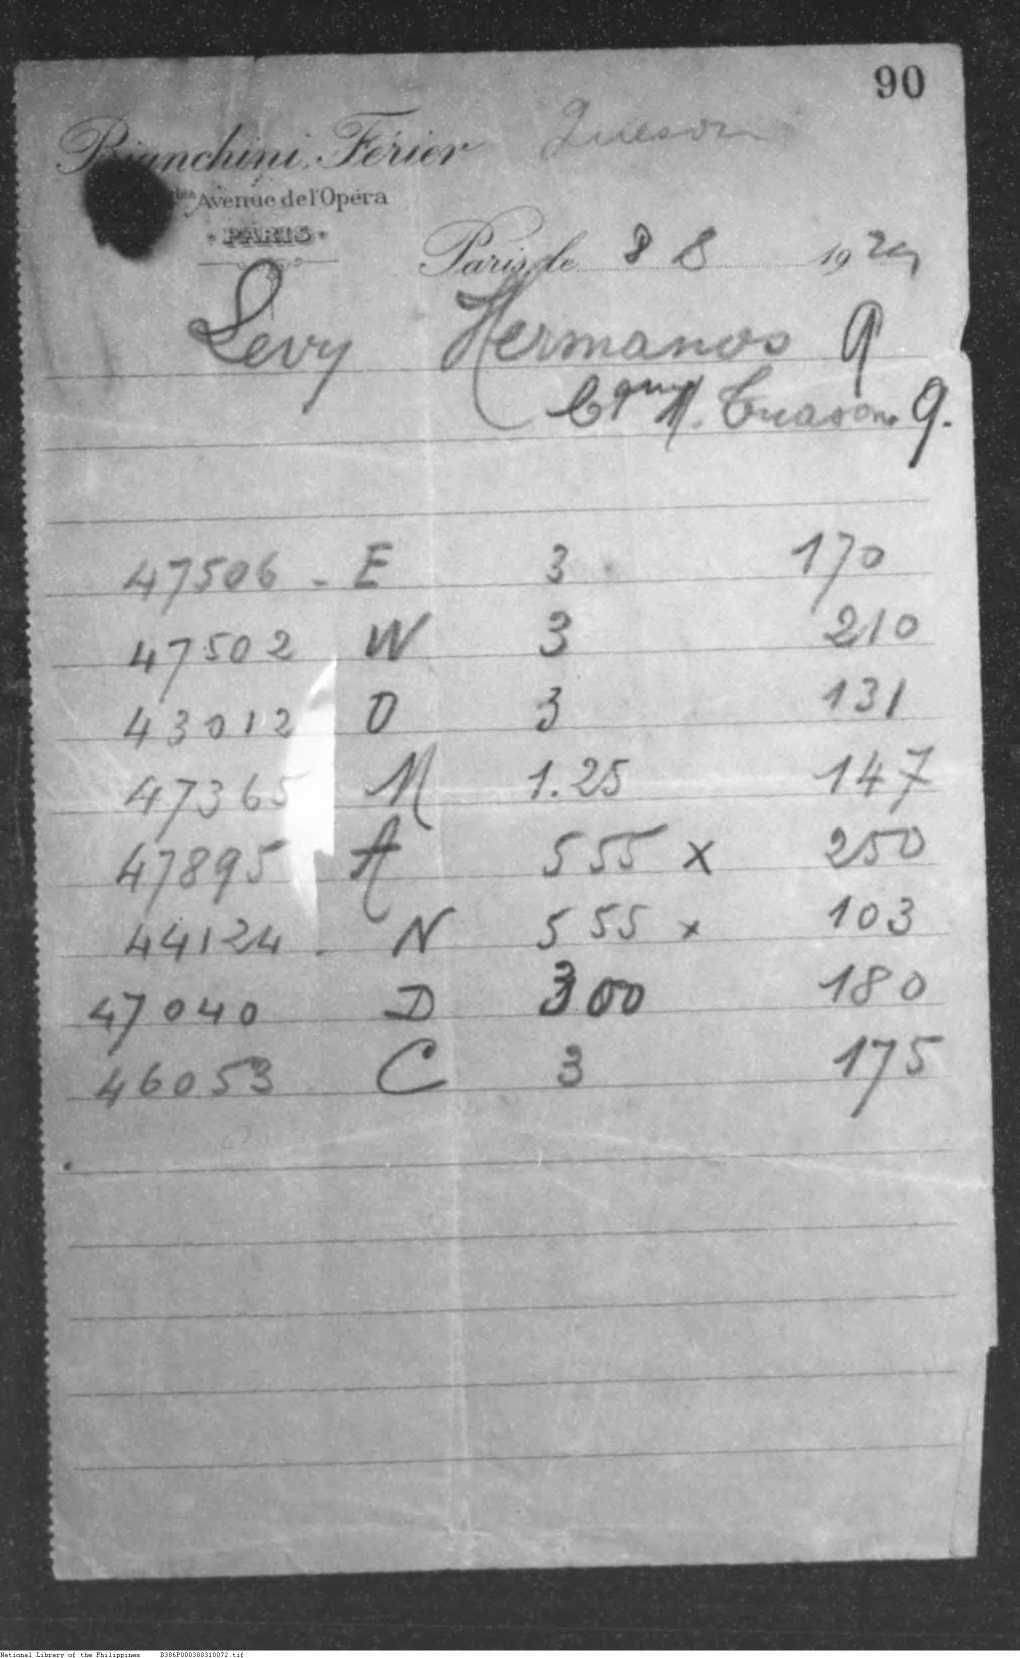 90
Bianchini, Férier
Queson
Avenue de l'Opéra
PARIS
Paris, le 8 8 1924
Levy Hermanos
Tuason
47506 - E 3 170
47502 W 3 210
43012 O 3 131
47365 M 1.25 147
47895 A 555 x 250
44124 - N 555 x 103
47040 D 300 180
46053 C 3 175
National Library of the Philippines D386P000380310072.tif